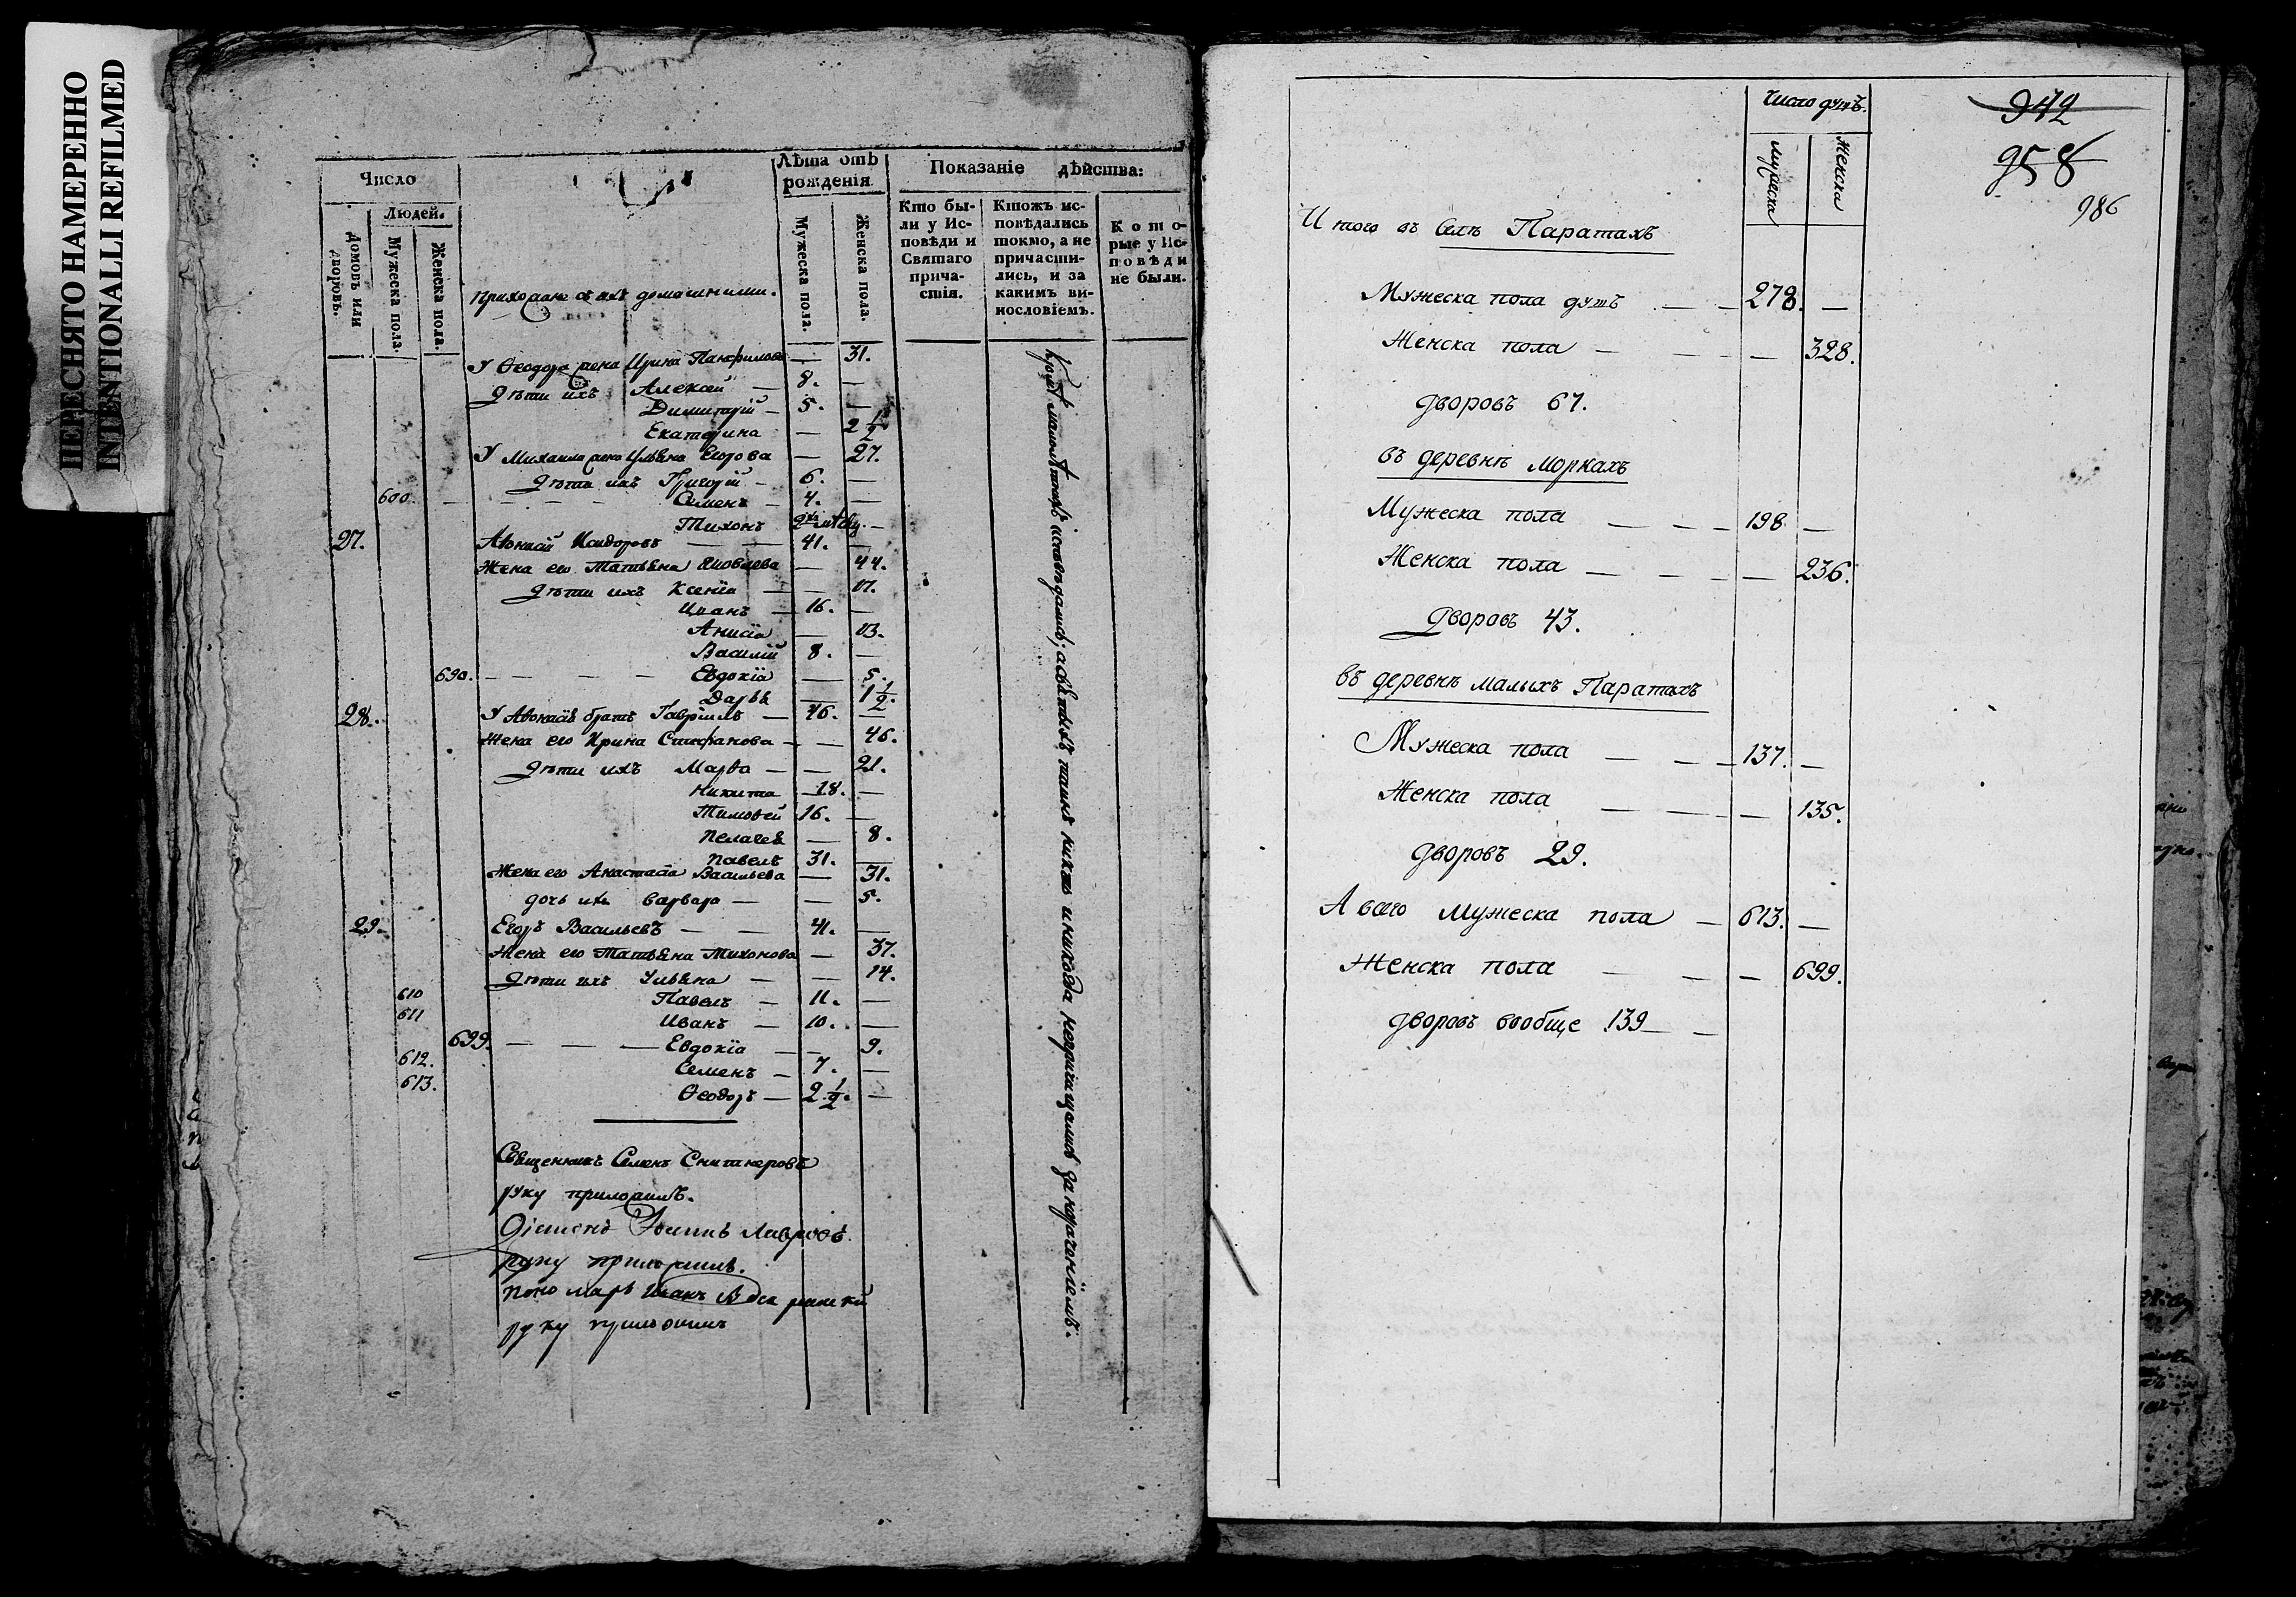 ПЕРЕСНЯТО НАМЕРЕННО
INTENTIONALLI REFILMED
Число
Людей.
домовъ или дворовъ.
Мужеска пола.
Женска пола.
Приходские съ ихъ домашними.
Лѣта отъ рожденія
Мужеска пола.
Женска пола.
Показаніе дѣйства:
Кто бы-
ли у Ис-
повѣди и
Святаго
прича-
стія.
Ктожъ ис-
повѣдались
токмо, а не
причасти-
лись, и за
какимъ ви-
нословіемъ.
Кото-
рые у Ис-
повѣди
не были.
У Ѳеодора жена Ирина Панфилова — 31.
дѣти ихъ Алексѣй — 8. —
Димитрій — 5. —
Екатерина — 2 1/2
У Михаила жена Ульяна Егорова — 27.
дѣти ихъ Григорій — 6. —
600. — — — — Семенъ — 4. —
Тихонъ —
27. Аѳонасій Исидоровъ — — 41. —
Жена его Татьяна Яковлева — 44.
дѣти ихъ Ксенія — — 17.
Иванъ — 16. —
Анисія — 13.
Василій 8. —
690. — — — — Евдокія — 5.
Дарья — 1 1/2.
28. У Аѳонасія братъ Гавріилъ — 46. —
Жена его Ирина Стефанова — — 46.
дѣти ихъ Марѳа — — 21.
Никита — 18. —
Тимоѳей 16. —
Пелагея — 8.
Павелъ 31. —
Жена его Анастасія Васильева — 31.
дочь ихъ Варвара — — 5.
29. Егоръ Васильевъ — — 41. —
Жена его Татьяна Тихонова — 37.
дѣти ихъ Ульяна — — 14.
610 Павелъ — 11. —
611 Иванъ — 10. —
699. — — — Евдокія — — 9.
612. Семенъ — 7. —
613. Ѳеодоръ — 2 1/2. —
Кромѣ малолѣтнихъ исповѣдались; а святыхъ таинъ никто и никогда непричащались за нераченіемъ.
Священникъ Семенъ Снитнеровъ
руку приложилъ.
Діаконъ Іоаннъ Лавровъ
руку приложилъ.
пономарь Иванъ
руку приложилъ
Число душъ.
Мужеска
Женска
942
958
986
Итого въ Селѣ Паратахъ
Мужеска пола душъ — — 278. —
Женска пола — — — — 328.
дворовъ 67.
въ деревнѣ Моркахъ
Мужеска пола — — — 198. —
Женска пола — — — — 236.
дворовъ 43.
въ деревнѣ малыхъ Паратахъ
Мужеска пола — — — 137. —
Женска пола — — — — 135.
дворовъ 29.
А всего мужеска пола — 613. —
Женска пола — — — 699.
дворовъ вообще 139 — —